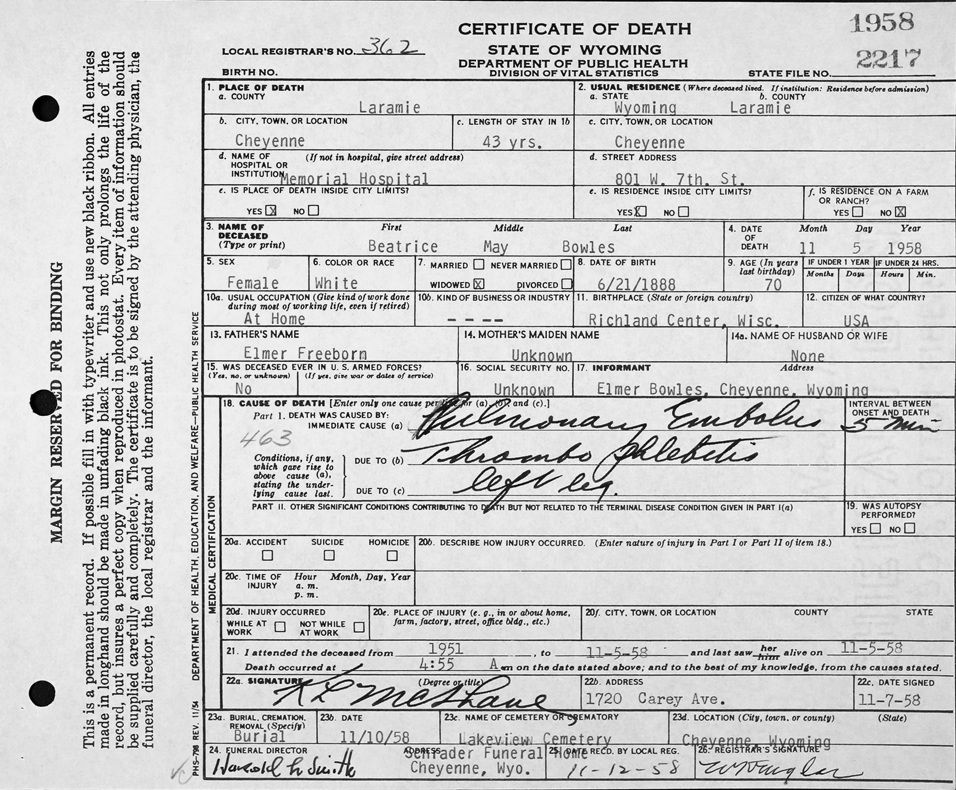 CERTIFICATE OF DEATH
1958
LOCAL REGISTRAR'S NO. 362
STATE OF WYOMING
DEPARTMENT OF PUBLIC HEALTH
2217
BIRTH NO.
DIVISION OF VITAL STATISTICS
STATE FILE NO.
1. PLACE OF DEATH
a. COUNTY
Laramie
2. USUAL RESIDENCE (Where deceased lived. If institution: Residence before admission)
a. STATE b. COUNTY
Wyoming Laramie
b. CITY, TOWN, OR LOCATION
Cheyenne
c. LENGTH OF STAY IN 1b
43 yrs.
c. CITY, TOWN, OR LOCATION
Cheyenne
d. NAME OF (If not in hospital, give street address)
HOSPITAL OR
INSTITUTION Memorial Hospital
d. STREET ADDRESS
801 W. 7th. St.
e. IS PLACE OF DEATH INSIDE CITY LIMITS?
YES X NO
e. IS RESIDENCE INSIDE CITY LIMITS?
YES X NO
f. IS RESIDENCE ON A FARM
OR RANCH?
YES NO X
3. NAME OF
DECEASED
(Type or print)
First Middle Last
Beatrice May Bowles
4. DATE
OF
DEATH
Month Day Year
11 5 1958
5. SEX
Female
6. COLOR OR RACE
White
7. MARRIED NEVER MARRIED
WIDOWED X DIVORCED
8. DATE OF BIRTH
6/21/1888
9. AGE (In years
last birthday)
70
IF UNDER 1 YEAR
Months Days
IF UNDER 24 HRS.
Hours Min.
10a. USUAL OCCUPATION (Give kind of work done
during most of working life, even if retired)
At Home
10b. KIND OF BUSINESS OR INDUSTRY
- - - -
11. BIRTHPLACE (State or foreign country)
Richland Center, Wisc.
12. CITIZEN OF WHAT COUNTRY?
USA
13. FATHER'S NAME
Elmer Freeborn
14. MOTHER'S MAIDEN NAME
Unknown
14a. NAME OF HUSBAND OR WIFE
None
15. WAS DECEASED EVER IN U. S. ARMED FORCES?
(Yes, no, or unknown) (If yes, give war or dates of service)
No
16. SOCIAL SECURITY NO.
Unknown
17. INFORMANT Address
Elmer Bowles, Cheyenne, Wyoming
18. CAUSE OF DEATH [Enter only one cause per line for (a), (b) and (c).]
INTERVAL BETWEEN
ONSET AND DEATH
Part I. DEATH WAS CAUSED BY:
IMMEDIATE CAUSE (a) Pulmonary Embolus
5 Min
463
Conditions, if any,
which gave rise to
above cause (a),
stating the under-
lying cause last.
DUE TO (b) Thrombo phlebitis
DUE TO (c) left leg.
PART II. OTHER SIGNIFICANT CONDITIONS CONTRIBUTING TO DEATH BUT NOT RELATED TO THE TERMINAL DISEASE CONDITION GIVEN IN PART I(a)
19. WAS AUTOPSY
PERFORMED?
YES NO
20a. ACCIDENT SUICIDE HOMICIDE
20b. DESCRIBE HOW INJURY OCCURRED. (Enter nature of injury in Part I or Part II of item 18.)
20c. TIME OF
INJURY
Hour Month, Day, Year
a. m.
p. m.
20d. INJURY OCCURRED
WHILE AT
WORK
NOT WHILE
AT WORK
20e. PLACE OF INJURY (e. g., in or about home,
farm, factory, street, office bldg., etc.)
20f. CITY, TOWN, OR LOCATION COUNTY STATE
21. I attended the deceased from 1951, to 11-5-58 and last saw her him alive on 11-5-58
Death occurred at 4:55 A. m on the date stated above; and to the best of my knowledge, from the causes stated.
22a. SIGNATURE (Degree or title)
K L McShane
22b. ADDRESS
1720 Carey Ave.
22c. DATE SIGNED
11-7-58
23a. BURIAL, CREMATION,
REMOVAL (Specify)
Burial
23b. DATE
11/10/58
23c. NAME OF CEMETERY OR CREMATORY
Lakeview Cemetery
23d. LOCATION (City, town, or county) (State)
Cheyenne, Wyoming
24. FUNERAL DIRECTOR
Harold L Smith
ADDRESS
Schrader Funeral Home
Cheyenne, Wyo.
25. DATE RECD. BY LOCAL REG.
11-12-58
26. REGISTRAR'S SIGNATURE
MARGIN RESERVED FOR BINDING
This is a permanent record. If possible fill in with typewriter and use new black ribbon. All entries
made in longhand should be made in unfading black ink. This not only prolongs the life of the
record, but insures a perfect copy when reproduced in photostat. Every item of information should
be supplied carefully and completely. The certificate is to be signed by the attending physician, the
funeral director, the local registrar and the informant.
DEPARTMENT OF HEALTH, EDUCATION, AND WELFARE—PUBLIC HEALTH SERVICE
PHS-798 REV. 11/54
MEDICAL CERTIFICATION